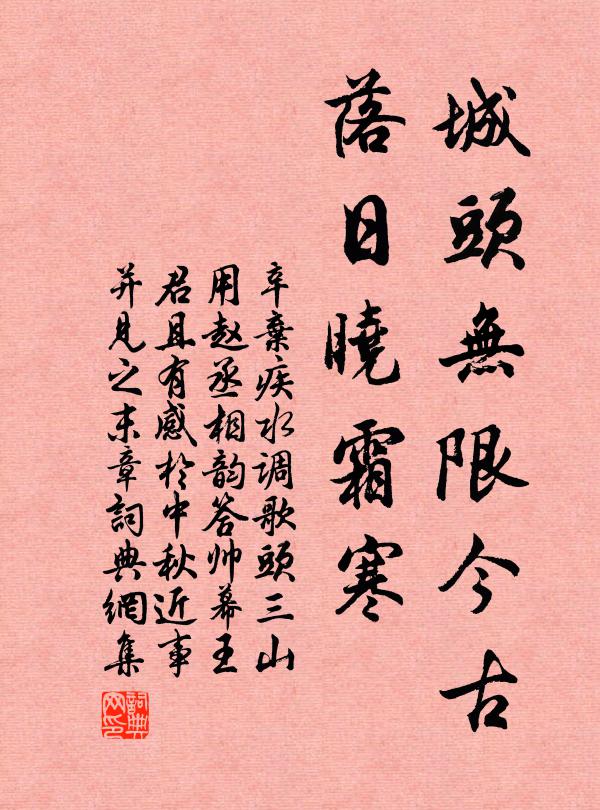 城頭無限今古
落日曉霜寒
辛棄疾水调歌頭三山
用赵丞相韵答帅幕王
君且有感於中秋近事
并見之末章詞典網集
詞典网印